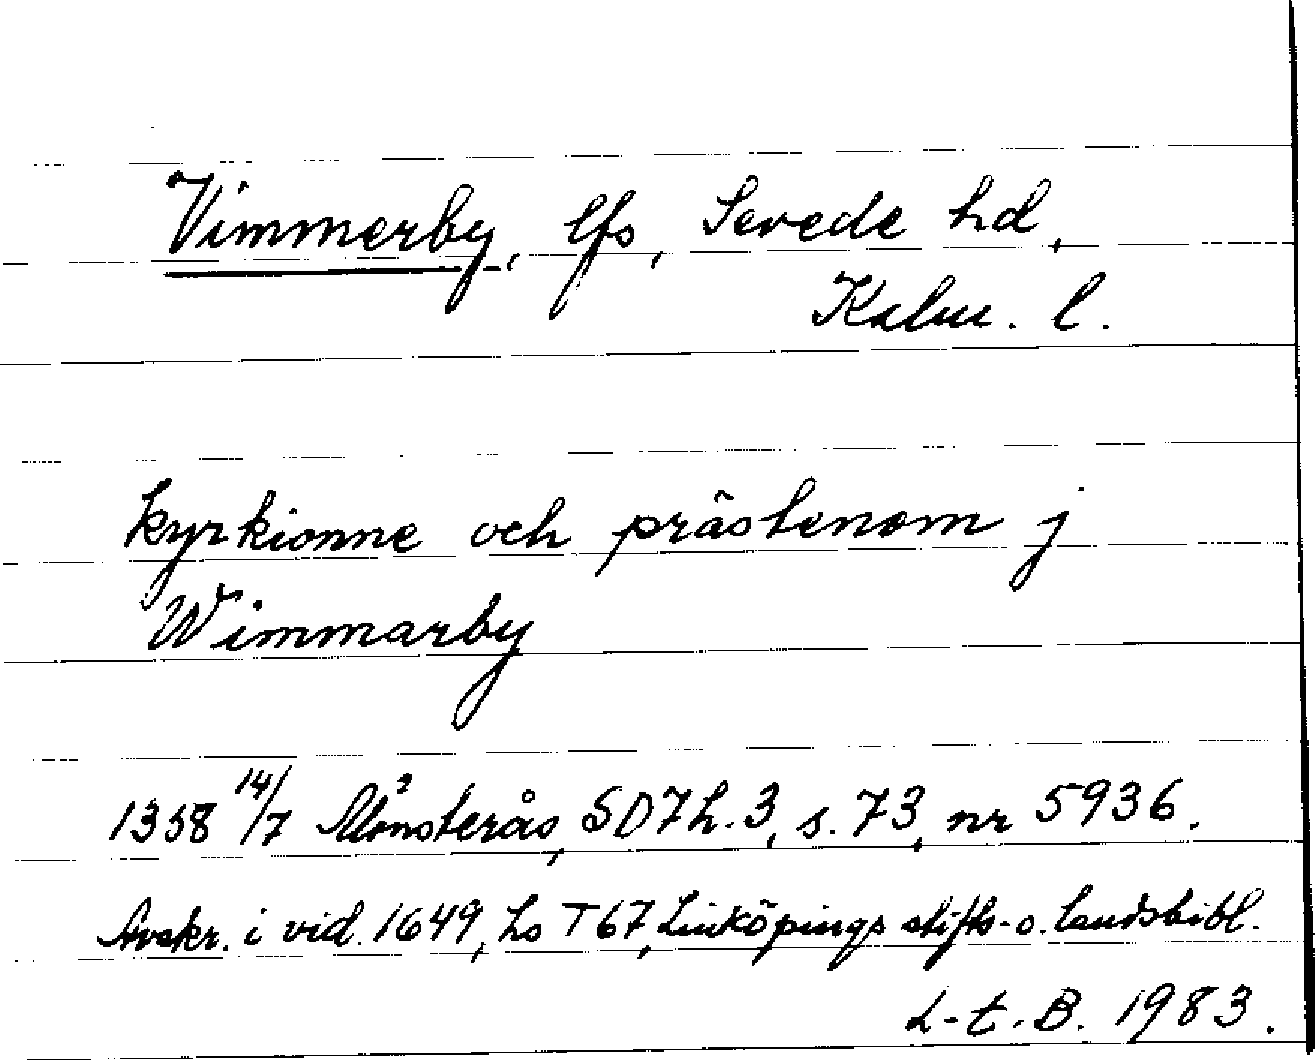 Vimmerby, lfs, Sevede hd,
Kalm. l.
kyrkionne och prästenom j
Wimmarby
1358 14/7 Mönsterås, SD7h.3, s.73, nr 5936.
Avskr. i vid. 1649, hs T67, Linköpings stifts- o. landsbibl.
L-t. B. 1983.